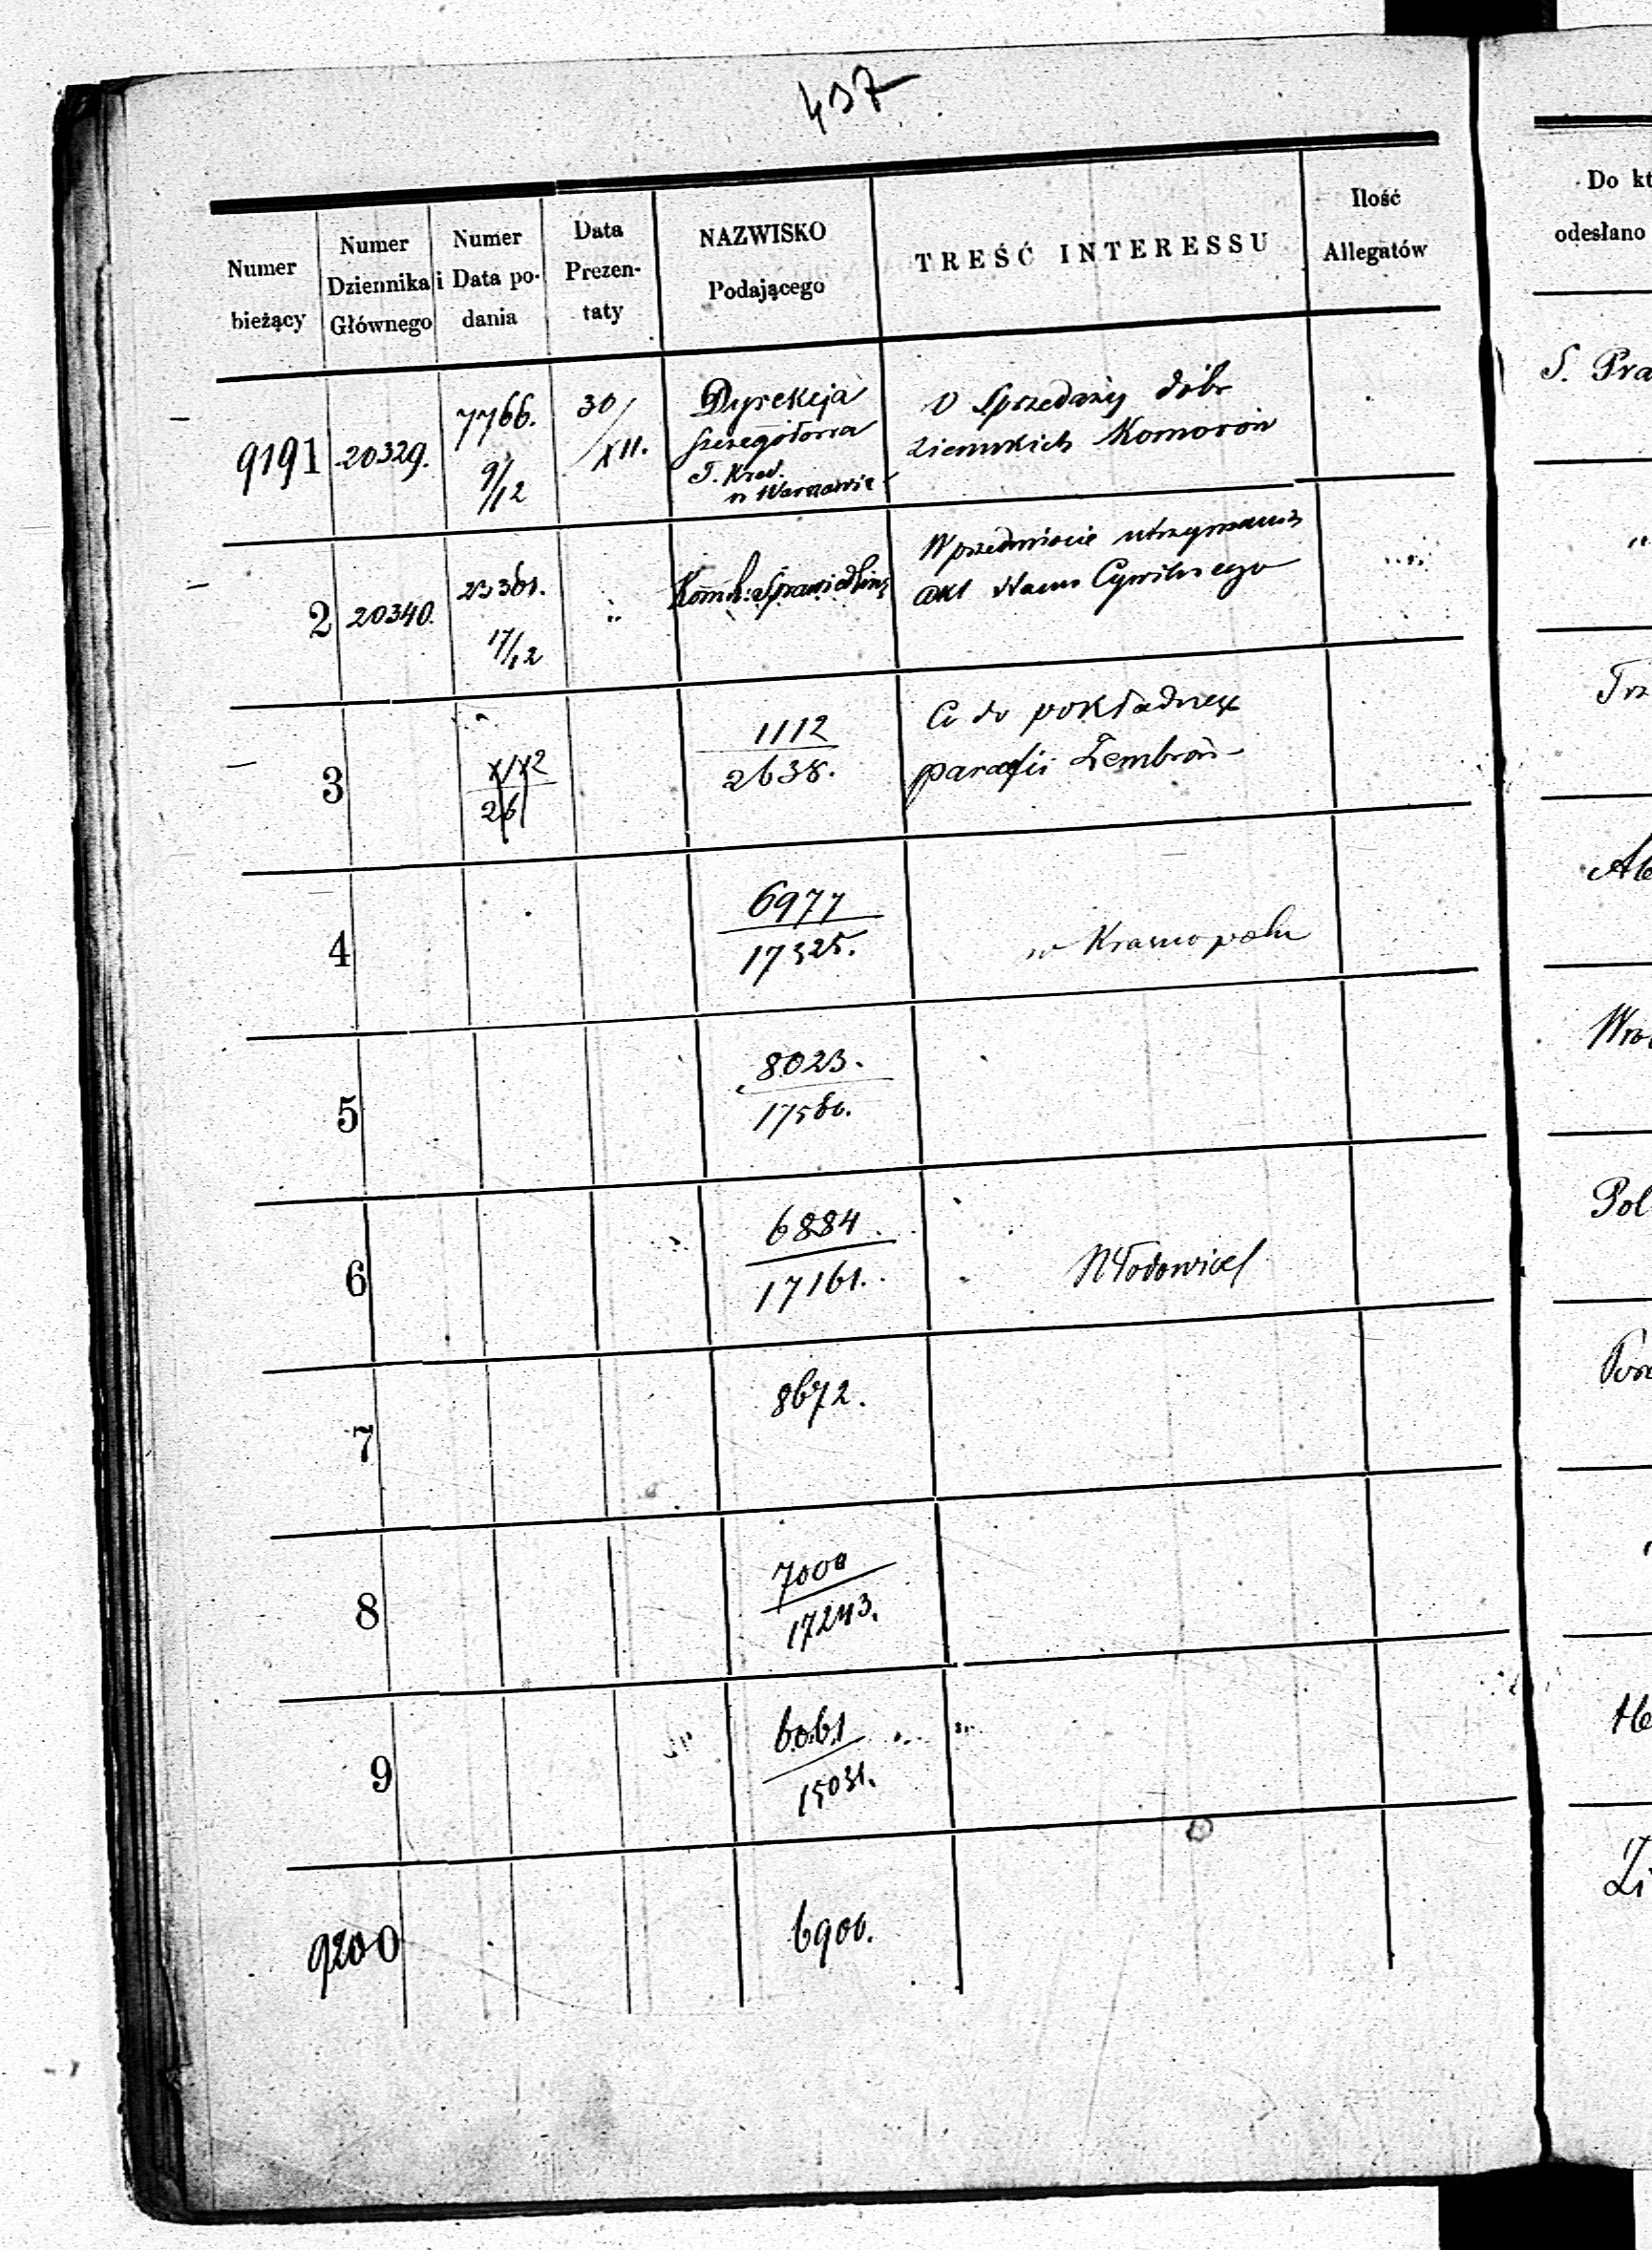 437
Numer bieżący
Numer Dziennika Głównego
Numer i Data podania
Data Prezentaty
NAZWISKO Podającego
TREŚĆ INTERESSU
Ilość Allegatów
Do kt
odesłano
9191 20329. 7766. 9/12 30/XII.
Dyrekcja
szczegółowa
T. Kred.
w Warszawie
O sprzedaży dóbr
ziemskich Komorów
S. Pra
2 20340. 23361. 17/12 "
W przedmiocie utrzymania
akt Stanu Cywilnego
"
3
1112
2638.
Co do pokładnex
parafii Zembroń
Trz
4
6977
17325.
w Krasnopolu
5
8023.
17560.
6
6884.
17161.
Włodowice
Pol
7
8672.
8
7000
17243.
9
6061
15031.
9200
6900.